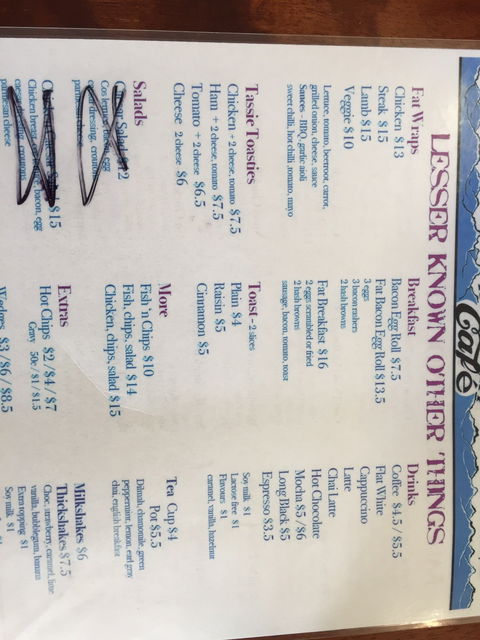 Café
LESSER KNOWN OTHER THINGS
Fat Wraps
Chicken $13
Steak $15
Lamb $15
Veggie $10
Lettuce, tomato, beetroot, carrot,
grilled onion, cheese, sauce
Sauces - BBQ, garlic aioli
sweet chilli, hot chilli, tomato, mayo
Tassie Toasties
Chicken + 2 cheese, tomato $7.5
Ham + 2 cheese, tomato $7.5
Tomato + 2 cheese $6.5
Cheese 2 cheese $6
Salads
Salad
Cos lettuce, egg
dressing, crouton
parmesan cheese
$15
Chicken breast, bacon, egg
croutons,
parmesan cheese
Breakfast
Bacon Egg Roll $7.5
Fat Bacon Egg Roll $13.5
3 eggs
3 bacon rashers
2 hash browns
Fat Breakfast $16
2 eggs scrambled or fried
2 hash browns
sausage, bacon, tomato, toast
Toast - 2 slices
Plain $4
Raisin $5
Cinnamon $5
More
Fish 'n Chips $10
Fish, chips, salad $14
Chicken, chips, salad $15
Extras
Hot Chips $2 / $4 / $7
Gravy 50c / $1 / $1.5
Wedges $3 / $6 / $8.5
Drinks
Coffee $4.5 / $5.5
Flat White
Cappuccino
Latte
Chai Latte
Hot Chocolate
Mocha $5 / $6
Long Black $5
Espresso $3.5
Soy milk $1
Lactose free $1
Flavours $1
caramel, vanilla, hazelnut
Tea Cup $4
Pot $5.5
Dilmah, chamomile, green
peppermint, lemon, earl gray
chai, english breakfast
Milkshakes $6
Thickshakes $7.5
Choc, strawberry, caramel, lime
vanilla, bubblegum, banana
Extra topping $1
Soy milk $1